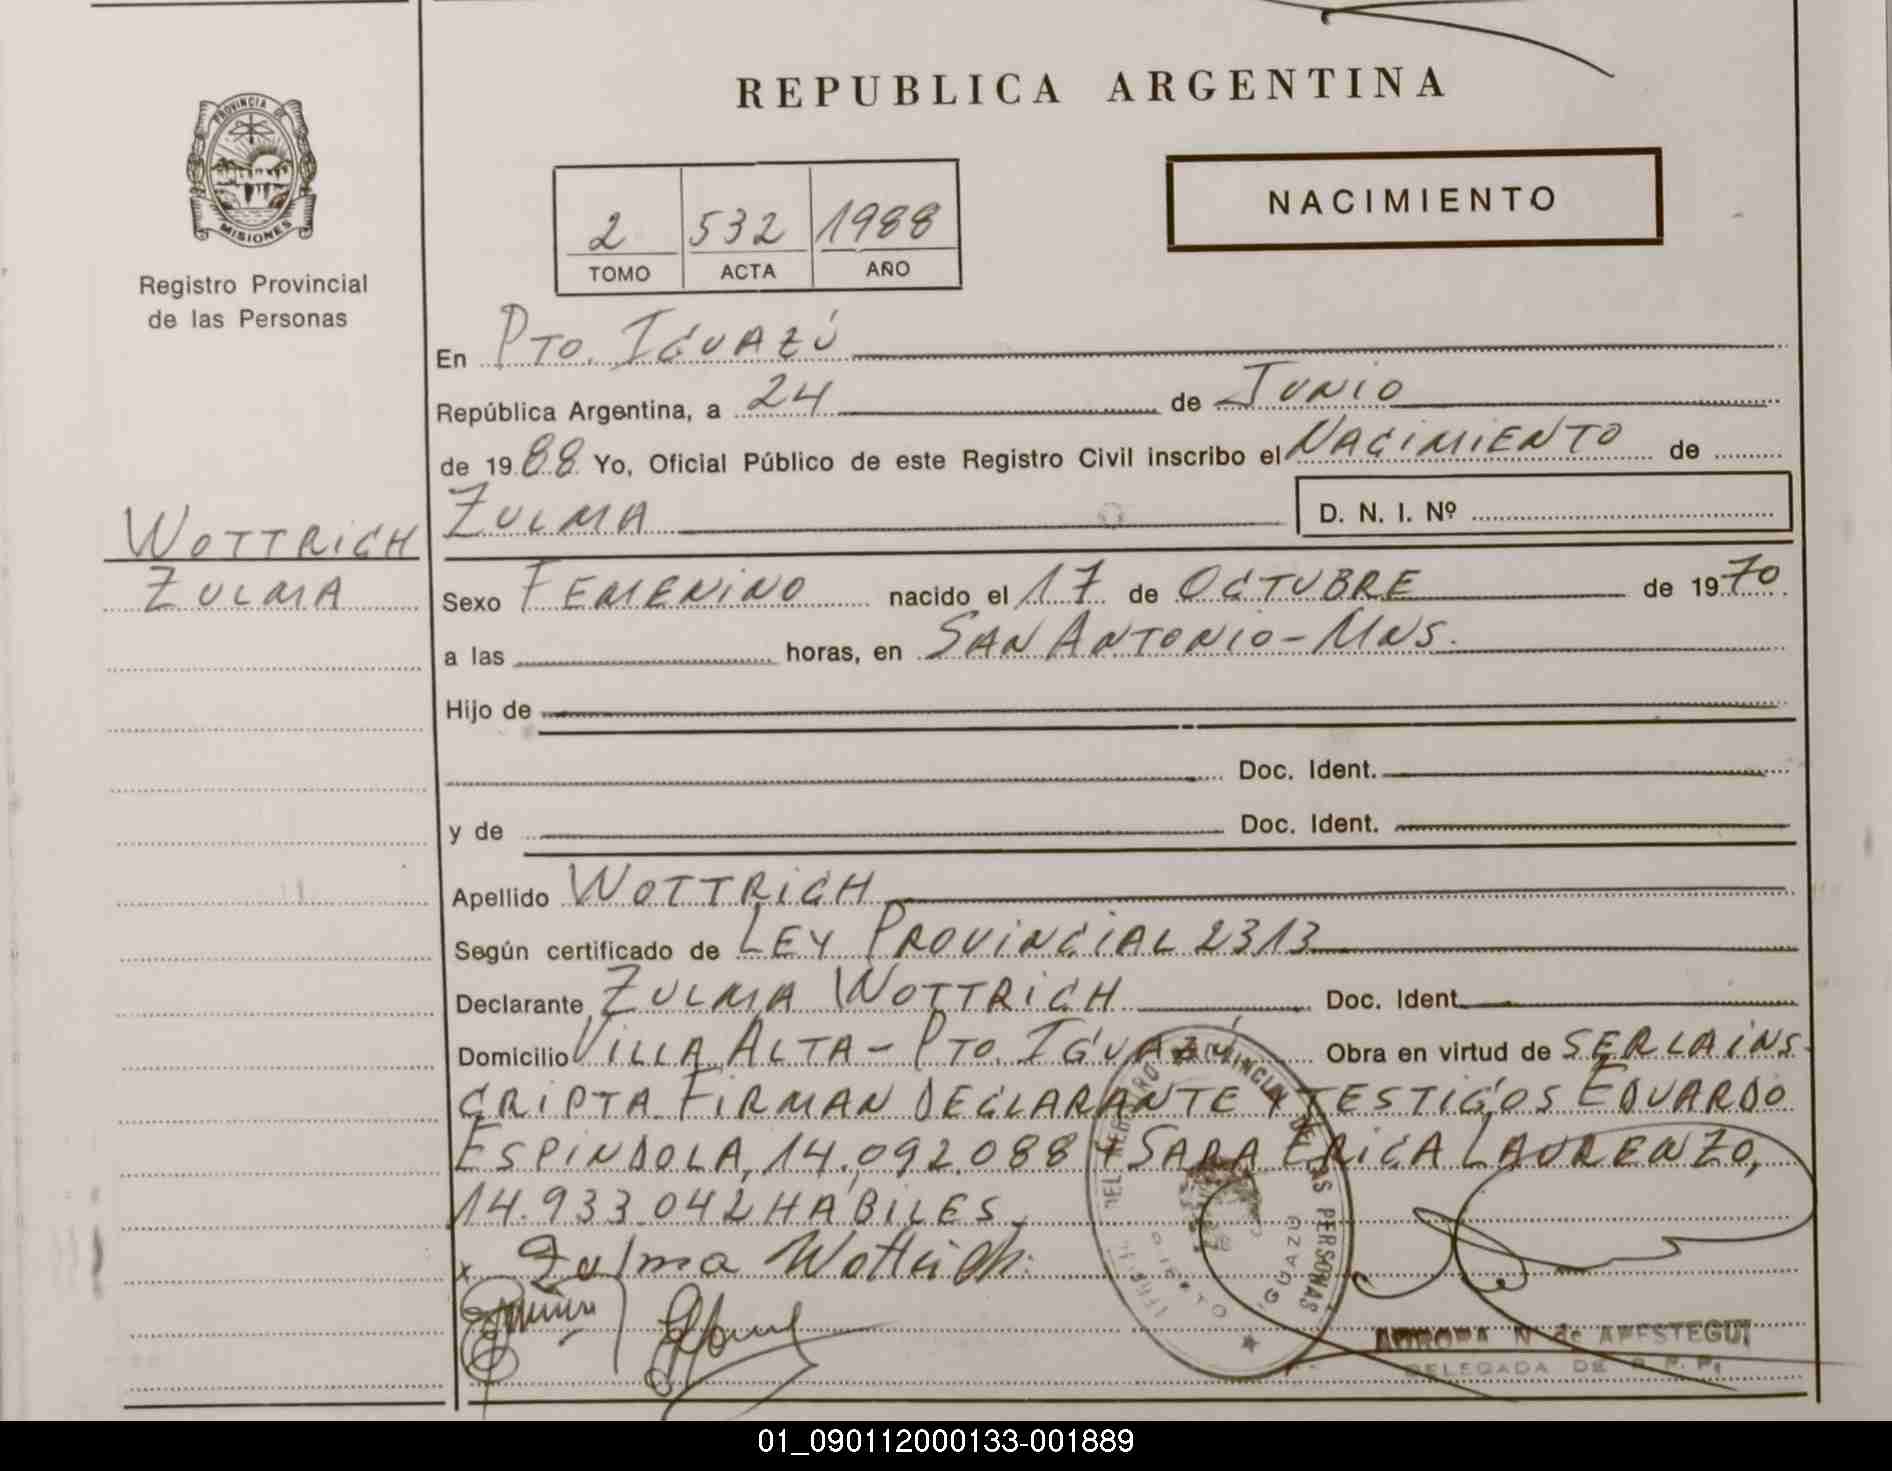 REPUBLICA ARGENTINA
PROVINCIA DE
MISIONES
Registro Provincial
de las Personas
NACIMIENTO
2 532 1988
TOMO ACTA AÑO
En PTO. IGUAZÚ
República Argentina, a 24 de JUNIO
de 1988 Yo, Oficial Público de este Registro Civil inscribo el NACIMIENTO de
ZULMA D. N. I. Nº
WOTTRICH
ZULMA
Sexo FEMENINO nacido el 17 de OCTUBRE de 1970
a las horas, en SAN ANTONIO - MNS.
Hijo de
Doc. Ident.
y de Doc. Ident.
Apellido WOTTRICH
Según certificado de LEY PROVINCIAL 2313
Declarante ZULMA WOTTRICH Doc. Ident.
Domicilio VILLA ALTA - PTO. IGUAZÚ Obra en virtud de SER LA INS-
CRIPTA FIRMAN DECLARANTE Y TESTIGOS EDUARDO
ESPINDOLA, 14.092.088 Y SARA ERICA LAURENZO,
14.933.042 HABILES.
x Zulma Wottrich.
DE LAS PERSONAS
IGUAZU
AURORA N. de APESTEGUI
DELEGADA DE R. P. P.
01_090112000133-001889